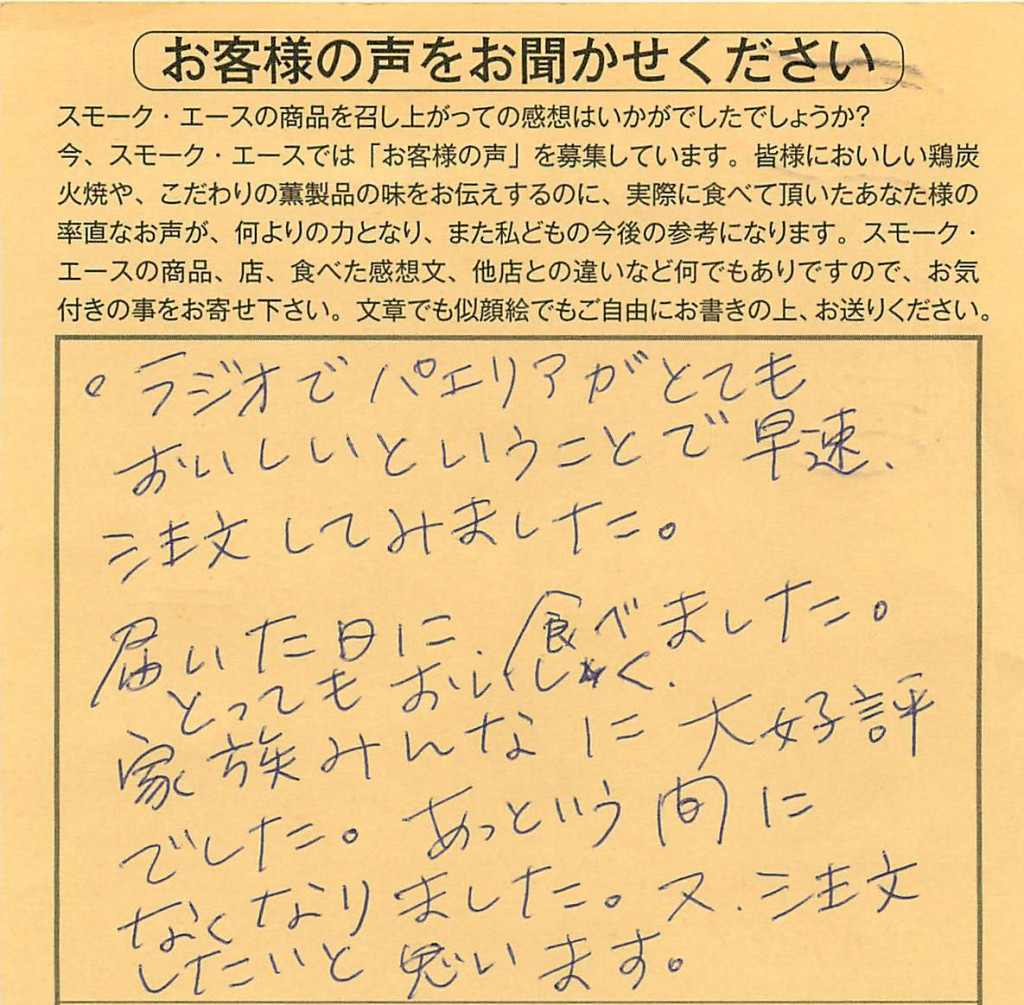 お客様の声をお聞かせください
スモーク・エースの商品を召し上がっての感想はいかがでしたでしょうか?
今、スモーク・エースでは「お客様の声」を募集しています。皆様においしい鶏炭
火焼や、こだわりの薫製品の味をお伝えするのに、実際に食べて頂いたあなた様の
率直なお声が、何よりの力となり、また私どもの今後の参考になります。スモーク・
エースの商品、店、食べた感想文、他店との違いなど何でもありですので、お気
付きの事をお寄せ下さい。文章でも似顔絵でもご自由にお書きの上、お送りください。
。ラジオでパエリアがとても
おいしいということで早速、
注文してみました。
届いた日に、食べました。
とってもおいしく、
家族みんなに大好評
でした。あっという間に
なくなりました。又、注文
したいと思います。